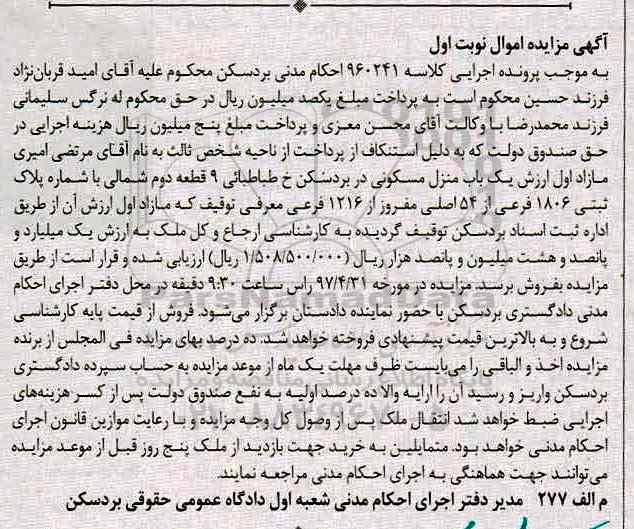 آگهی مزایده اموال نوبت اول
به موجب پرونده اجرایی کلاسه ۹۶۰۲۴۱ احکام مدنی بردسکن محکوم علیه آقای امید قربان‌نژاد
فرزند حسین محکوم است به پرداخت مبلغ یکصد میلیون ریال در حق محکوم له نرگس سلیمانی
فرزند محمدرضا با وکالت آقای محسن معزی و پرداخت مبلغ پنج میلیون ریال هزینه اجرایی در
حق صندوق دولت که به دلیل استنکاف از پرداخت از ناحیه شخص ثالث به نام آقای مرتضی امیری
مازاد اول ارزش یک باب منزل مسکونی در بردسکن خ طباطبائی ۹ قطعه دوم شمالی با شماره پلاک
ثبتی ۱۸۰۶ فرعی از ۵۴ اصلی مفروز از ۱۲۱۶ فرعی معرفی توقیف که مازاد اول ارزش آن از طریق
اداره ثبت اسناد بردسکن توقیف گردیده به کارشناسی ارجاع و کل ملک به ارزش یک میلیارد و
پانصد و هشت میلیون و پانصد هزار ریال (۱/۵۰۸/۵۰۰/۰۰۰ ریال) ارزیابی شده و قرار است از طریق
مزایده بفروش برسد. مزایده در مورخه ۹۷/۴/۳۱ راس ساعت ۹:۳۰ دقیقه در محل دفتر اجرای احکام
مدنی دادگستری بردسکن با حضور نماینده دادستان برگزار می‌شود. فروش از قیمت پایه کارشناسی
شروع و به بالاترین قیمت پیشنهادی فروخته خواهد شد. ده درصد بهای مزایده فی المجلس از برنده
مزایده اخذ و الباقی را می‌بایست ظرف مهلت یک ماه از موعد مزایده به حساب سپرده دادگستری
بردسکن واریز و رسید آن را ارایه والا ده درصد اولیه به نفع صندوق دولت پس از کسر هزینه‌های
اجرایی ضبط خواهد شد انتقال ملک پس از وصول کل وجه مزایده و با رعایت موازین قانون اجرای
احکام مدنی خواهد بود. متمایلین به خرید جهت بازدید از ملک پنج روز قبل از موعد مزایده
می‌توانند جهت هماهنگی به اجرای احکام مدنی مراجعه نمایند.
م الف ۲۷۷ مدیر دفتر اجرای احکام مدنی شعبه اول دادگاه عمومی حقوقی بردسکن
ParsNamadData